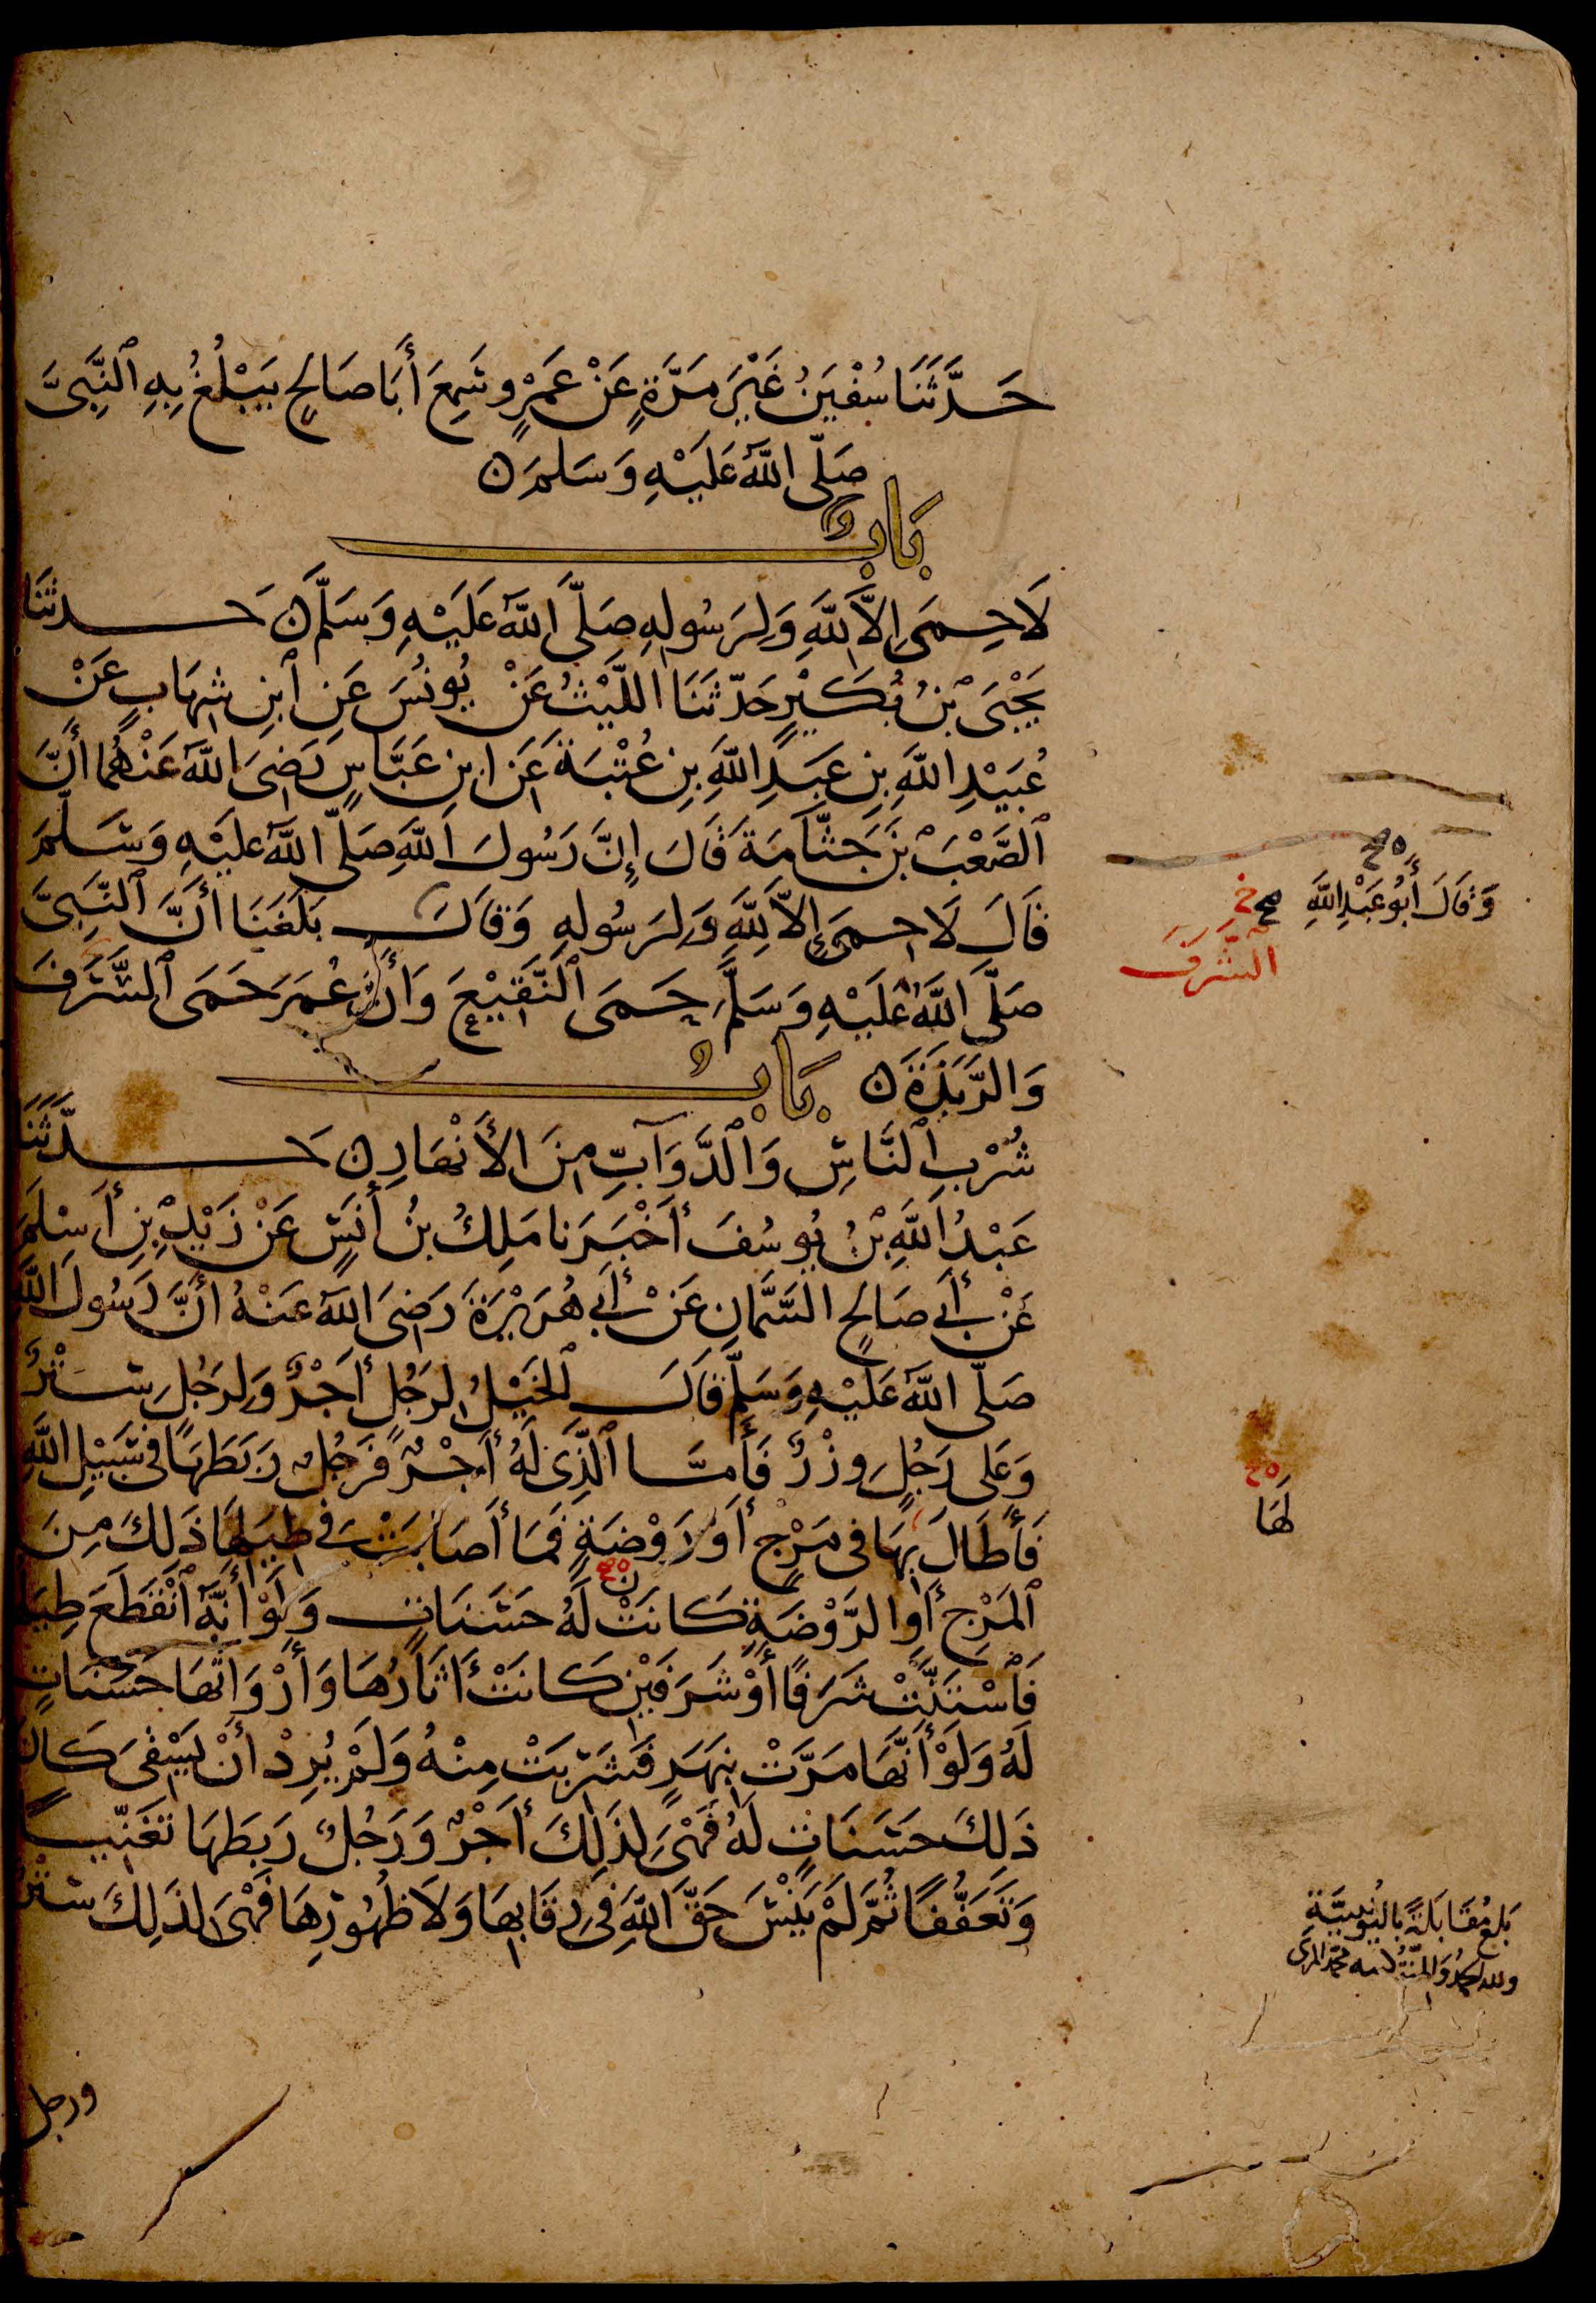 حَدَّثَنَا سُفْيَنُ غَيْرَ مَرَّةٍ عَنْ عَمْرٍو سَمِعَ أَبَا صَالِحٍ يَبْلُغُ بِهِ ٱلنَّبِيَّ
صَلَّى اللَّهُ عَلَيْهِ وَسَلَّمَ ن
بَابٌ
لَا حِمَى إِلَّا لِلَّهِ وَلِرَسُولِهِ صَلَّى اللَّهُ عَلَيْهِ وَسَلَّمَ ن حَدثَنَا
يَحْيَى بْنُ بُكَيْرٍ حَدَّثَنَا اللَّيْثُ عَنْ يُونُسَ عَنِ ٱبْنِ شِهَابٍ عَنْ
عُبَيْدِ اللَّهِ بْنِ عَبْدِ اللَّهِ بْنِ عُتْبَةَ عَنِ ابْنِ عَبَّاسٍ رَضِيَ اللَّهُ عَنْهُمَا أَنَّ
ٱلصَّعْبَ بْنَ جَثَّامَةَ قَالَ إِنَّ رَسُولَ اللَّهِ صَلَّى اللَّهُ عَلَيْهِ وَسَلَّمَ
قَالَ لَا حِمَى إِلَّا لِلَّهِ وَلِرَسُولِهِ وَقَالَ بَلَغَنَا أَنَّ ٱلنَّبِيَّ
صَلَّى اللَّهُ عَلَيْهِ وَسَلَّمَ حَمَى ٱلنَّقِيْعَ وَأَنَّ عُمَرَ حَمَى ٱلسَّرَفَ
وَالرَّبَذَةَ ن بَابُ
شُرْبِ ٱلنَّاسِ وَٱلدَّوَآبِّ مِنَ الأَنْهَارِ ن حَدَّثَنَا
عَبْدُ اللَّهِ بْنُ يُوسُفَ أَخْبَرَنَا مَلِكُ بْنُ أَنَسٍ عَنْ زَيْدِ بْنِ أَسْلَمَ
عَنْ أَبِي صَالِحٍ السَّمَّانِ عَنْ أَبِي هُرَيْرَةَ رَضِيَ اللَّهُ عَنْهُ أَنَّ رَسُولَ اللَّهِ
صَلَّى اللَّهُ عَلَيْهِ وَسَلَّمَ قَالَ ٱلْخَيْلُ لِرَجُلٍ أَجْرٌ وَلِرَجُلٍ سِتْرٌ
وَعَلَى رَجُلٍ وِزْرٌ فَأَمَّا ٱلَّذِي لَهُ أَجْرٌ فَرَجُلٌ رَبَطَهَا فِي سَبِيْلِ اللَّهِ
فَأَطَالَ بِهَا فِي مَرْجٍ أَوْ رَوْضَةٍ فَمَا أَصَابَتْ فِي طِيَلِهَا ذَلِكَ مِنَ
ٱلْمَرْجِ أَوِ الرَّوْضَةِ كَانَتْ لَهُ حَسَنَاتٍ وَلَوْ أَنَّهُ ٱنْقَطَعَ طِيَلُهَا
فَٱسْتَنَّتْ شَرَفًا أَوْ شَرَفَيْنِ كَانَتْ أَثَارُهَا وَأَرْوَاثُهَا حَسَنَاتٍ
لَهُ وَلَوْ أَنَّهَا مَرَّتْ بِنَهَرٍ فَشَرِبَتْ مِنْهُ وَلَمْ يُرِدْ أَنْ يَسْقِيَ كَانَ
ذَلِكَ حَسَنَاتٍ لَهُ فَهْيَ لِذَلِكَ أَجْرٌ وَرَجُلٌ رَبَطَهَا تَغَنِّيًا
وَتَعَفُّفًا ثُمَّ لَمْ يَنْسَ حَقَّ اللَّهِ فِي رِقَابِهَا وَلَا ظُهُورِهَا فَهْيَ لِذَلِكَ سِتْرٌ
ورجل
وَقَالَ أَبُو عَبْدِ اللَّهِ
صح
السَّرَفَ
لَهَا
بَلَغَ مُقَابَلَةً بِاليُونِينِيَّةِ
ولله الحمد وَالمنَّة